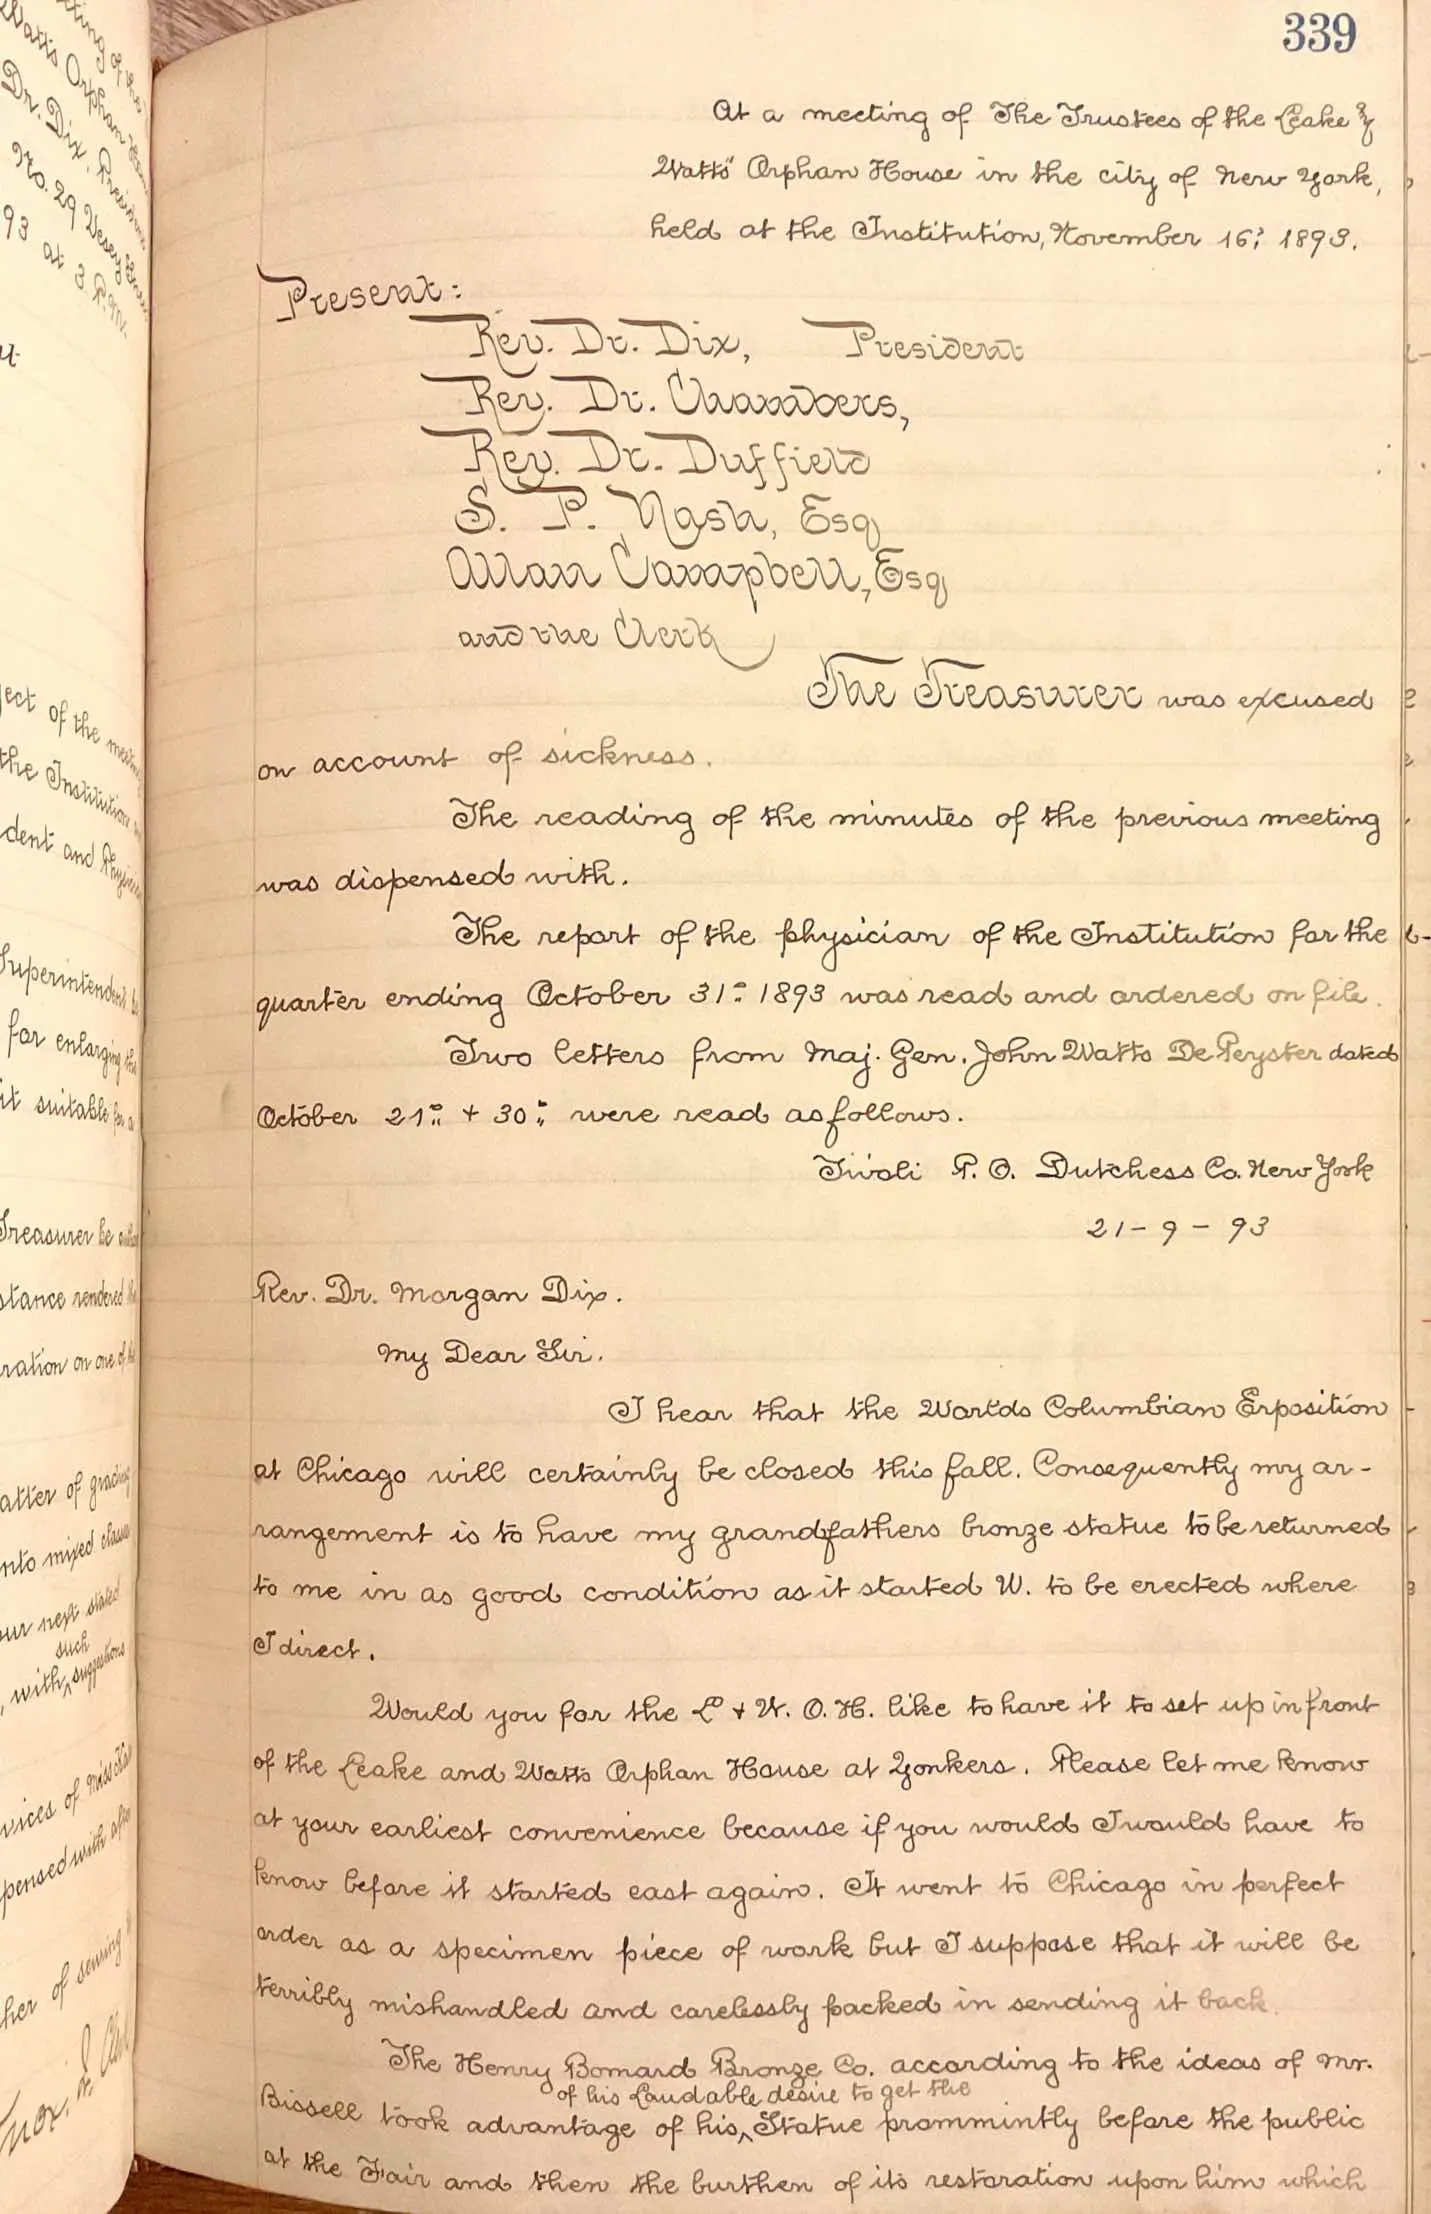 339
At a meeting of The Trustees of the Leake &
Watts' Orphan House in the city of New York,
held at the Institution, November 16: 1893.
Present:
Rev. Dr. Dix, President
Rev. Dr. Chambers,
Rev. Dr. Duffield
S. P. Nash, Esq
Allan Campbell, Esq
and the Clerk
The Treasurer was excused
on account of sickness.
The reading of the minutes of the previous meeting
was dispensed with.
The report of the physician of the Institution for the
quarter ending October 31st 1893 was read and ordered on file.
Two letters from Maj. Gen. John Watts De Peyster dated
October 21st + 30th were read as follows.
Tivoli P. O. Dutchess Co. New York
21 - 9 - 93
Rev. Dr. Morgan Dix.
My Dear Sir.
I hear that the Worlds Columbian Exposition
at Chicago will certainly be closed this fall. Consequently my ar-
rangement is to have my grandfathers bronze statue to be returned
to me in as good condition as it started W. to be erected where
I direct.
Would you for the L + W. O. H. like to have it to set up in front
of the Leake and Watts Orphan House at Yonkers. Please let me know
at your earliest convenience because if you would I would have to
know before it started east again. It went to Chicago in perfect
order as a specimen piece of work but I suppose that it will be
terribly mishandled and carelessly packed in sending it back.
The Henry Bomard Bronze Co. according to the ideas of Mr.
of his laudable desire to get the
Bissell took advantage of his ^ Statue prommintly before the public
at the Fair and then the burthen of its restoration upon him which
ting of the
Watts Orphan
Dr. Dix, President
No. 29 Vesey
93 at 3 P.M.
ject of the
the Institution
dent and
Superintendent
for enlarging the
it suitable for a
Treasurer be
stance rendered
ration on one of
atter of grading
nto mixed
our next stated
such
, with ^ suggestions
vices of Miss
pensed with after
her of sewing